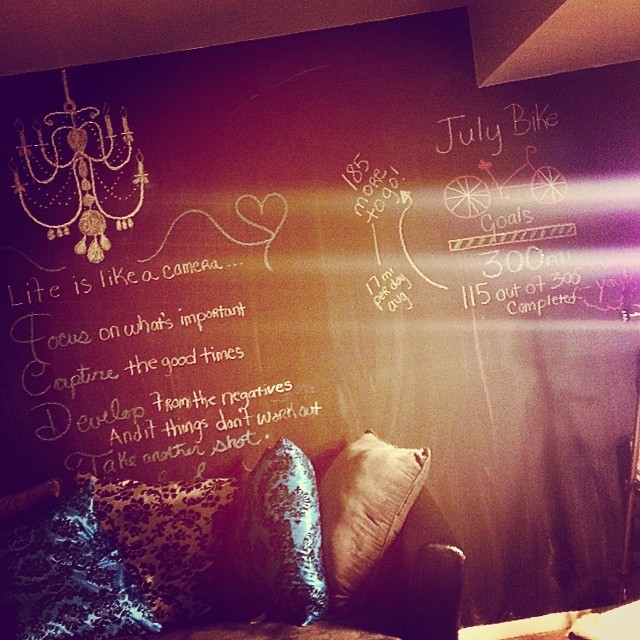 Life is like a camera...
Focus on what's important
Capture the good times
Develop From the negatives
And if things don't work out
Take another shot.
185
more
to go!
17 mi
per day
avg
July Bike
Goals
300 mi
115 out of 300
Completed